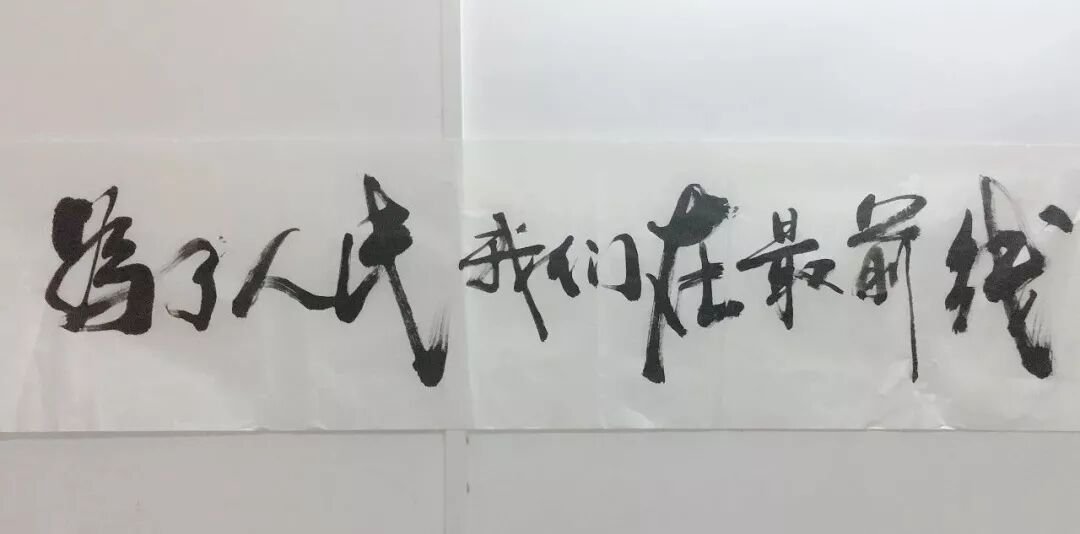 為了人民 我们在最前线